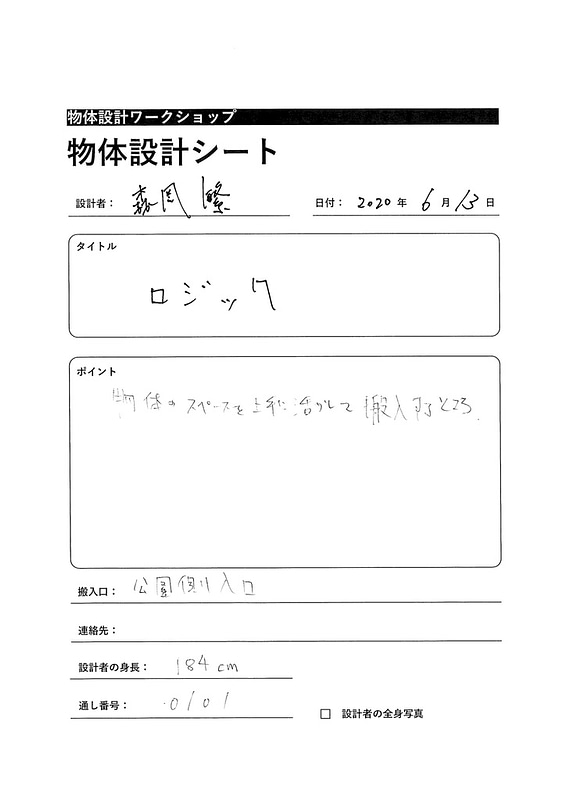 物体設計ワークショップ
物体設計シート
設計者： 森岡 繁
日付： 2020 年 6 月 13 日
タイトル
ロジック
ポイント
物体のスペースを上手に活かして搬入するところ.
搬入口： 公園側入口
連絡先：
設計者の身長： 184 cm
通し番号： 0101
□ 設計者の全身写真